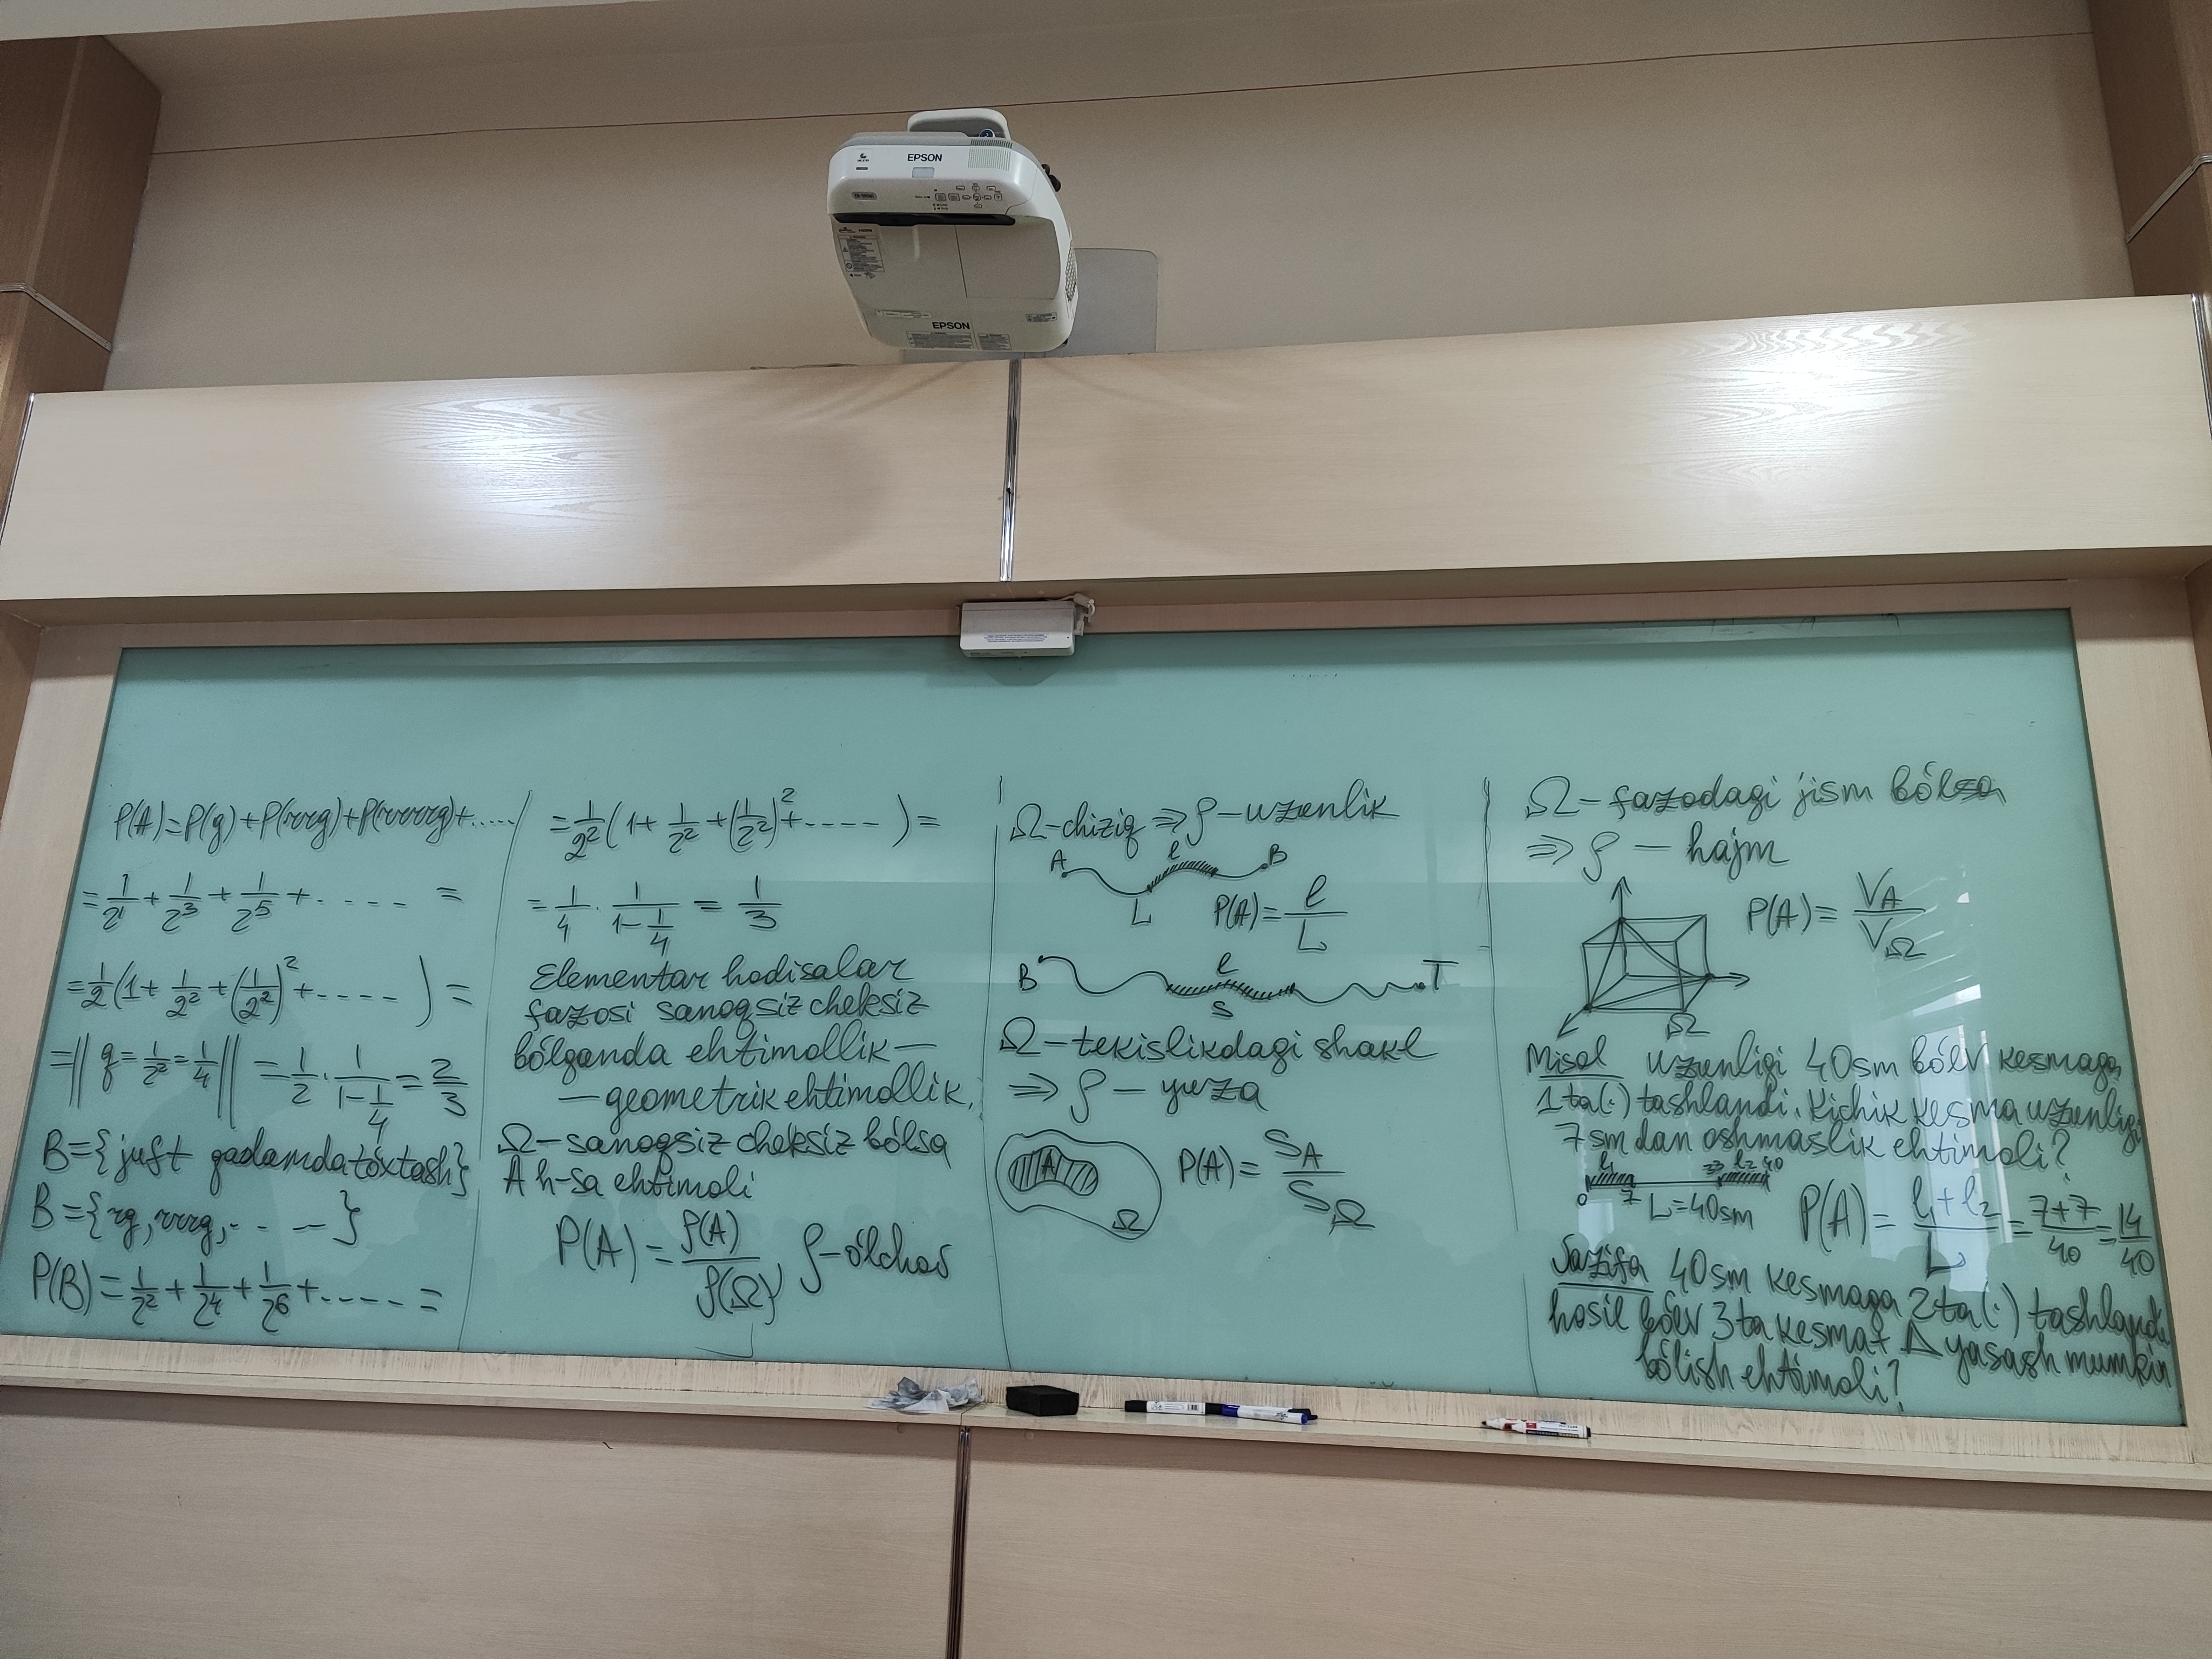 EPSON
EPSON
P(A)=P(g)+P(rrg)+P(rrrrg)+.....
= 1/2^1 + 1/2^3 + 1/2^5 + ..... =
= 1/2 (1 + 1/2^2 + (1/2^2)^2 + ..... ) =
= || q = 1/2^2 = 1/4 || = 1/2 · 1/(1 - 1/4) = 2/3
B={juft qadamda tóxtash}
B={rg, rrrg, ... }
P(B) = 1/2^2 + 1/2^4 + 1/2^6 + ..... =
= 1/2^2 (1 + 1/2^2 + (1/2^2)^2 + ..... ) =
= 1/4 · 1/(1 - 1/4) = 1/3
Elementar hodisalar
fazosi sanoqsiz cheksiz
bólganda ehtimollik—
— geometrik ehtimollik.
Ω — sanoqsiz cheksiz bólsa
A h-sa ehtimoli
P(A) = ρ(A)/ρ(Ω), ρ—ólchov
Ω-chiziq ⇒ ρ—uzunlik
A l B
L P(A) = l/L
B l T
S
Ω — tekislikdagi shakl
⇒ ρ — yuza
A Ω P(A) = S_A/S_Ω
Ω — fazodagi jism bólsa
⇒ ρ — hajm
P(A) = V_A/V_Ω
Ω
Misol uzunligi 40sm bólv kesmaga
1 ta(·) tashlandi. Kichik kesma uzunligi
7 sm dan oshmaslik ehtimoli?
l1 33 l2 40
0 7 L=40sm P(A) = (l1 + l2)/L = (7+7)/40 = 14/40
Vazifa 40sm kesmaga 2 ta(·) tashlandi
hosil bólv 3 ta kesmat Δ yasash mumkin
bólish ehtimoli?